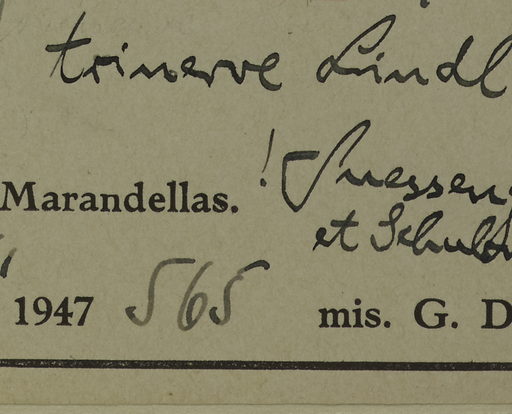 trinerve Lindl
! Suessen
Marandellas.
et Schul
1947 565 mis. G. D